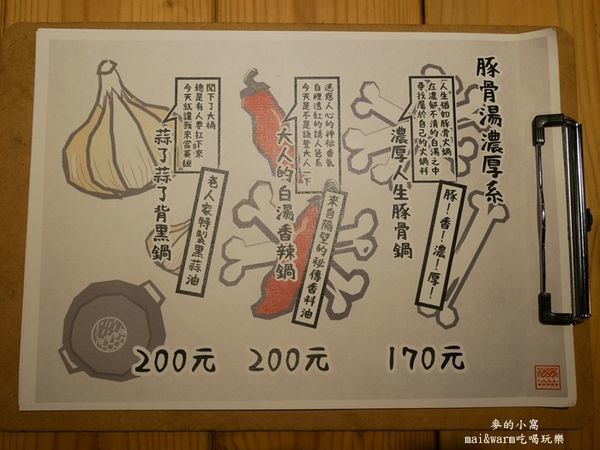 豚骨湯濃厚系
人生猶如豚骨火鍋
在濃郁不膩的白湯之中
尋找屬於自己的火鍋料
濃厚人生豚骨鍋
豚!香!濃!厚!
170元
迷惑人心的神秘香氣
白裡透紅的誘人色系
今天是不是該登大人一下
大人的白湯香辣鍋
來自隔壁的祕傳香料油
200元
闖下了大禍
總是有人要扛下來
今天就讓我來當英雄
蒜了蒜了背黑鍋
老人家特製黑蒜油
200元
麥的小窩
mai&warm吃喝玩樂